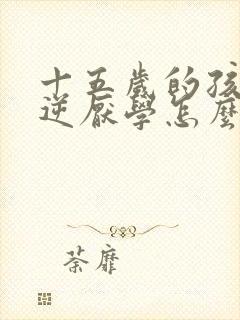 十五歲的孩
逆厭學怎麼
荼靡